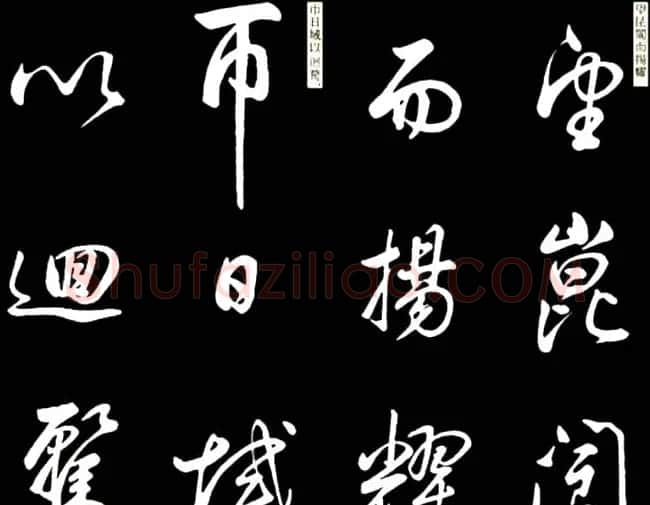 望昆閬而揚耀
望崑閬
而揚耀
帀日域以迴鶩
帀日域
以迴
shufaziliao.COM